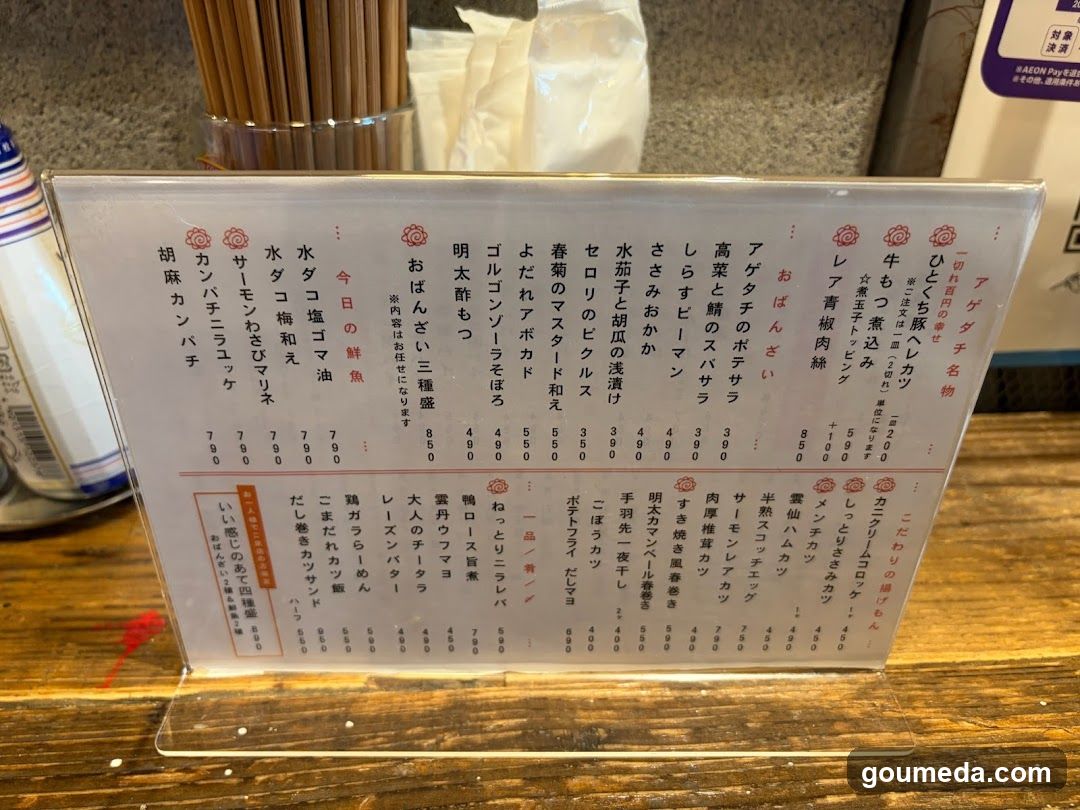 アゲダチ名物
一切れ百円の幸せ
ひとくち豚ヘレカツ 一皿 200
※ご注文は一皿(2切れ)単位になります
牛もつ煮込み 590
☆煮玉子トッピング +100
レア青椒肉絲 850
おばんざい
アゲタチのポテサラ 390
高菜と鯖のスパサラ 490
しらすピーマン 390
ささみおかか 490
水茄子と胡瓜の浅漬け 490
セロリのピクルス 350
春菊のマスタード和え 550
よだれアボカド 550
ゴルゴンゾーラそぼろ 490
明太酢もつ 490
おばんざい三種盛 850
※内容はお任せになります
今日の鮮魚
水ダコ塩ゴマ油 790
水ダコ梅和え 790
サーモンわさびマリネ 790
カンパチニラユッケ 790
胡麻カンパチ
こだわりの揚げもん
カニクリームコロッケ 1ヶ 450
しっとりささみカツ 450
メンチカツ 1ヶ 490
雲仙ハムカツ 450
半熟スコッチエッグ
サーモンレアカツ 790
肉厚椎茸カツ 490
すき焼き風春巻き 590
明太カマンベール春巻き 550
手羽先一夜干し 2ヶ 400
ごぼうカツ 400
ポテトフライ だしマヨ
一品/肴
ねっとりニラレバ 590
鴨ロース旨煮 790
雲丹ウフマヨ 450
大人のチータラ 490
レーズンバター 490
鶏ガララーめん 590
ごまだれカツ飯 550
だし巻きカツサンド 950
ハーフ 550
お一人様でご来店のお客様
いい感じのあて四種盛 890
おばんざい2種&鮮魚2種
対象
決済
※AEON Payを
※その他、適用条件が
goumeda.com